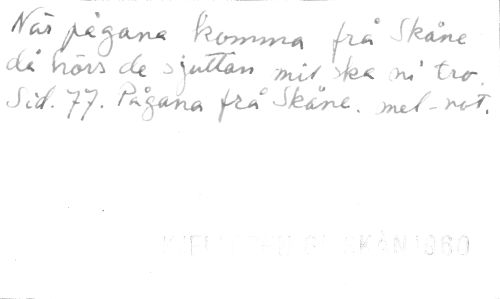 När pågana komma från Skåne
då hörs de sjuttan mil ska ni tro.
Sid. 77. Pågana från Skåne. mel-not.